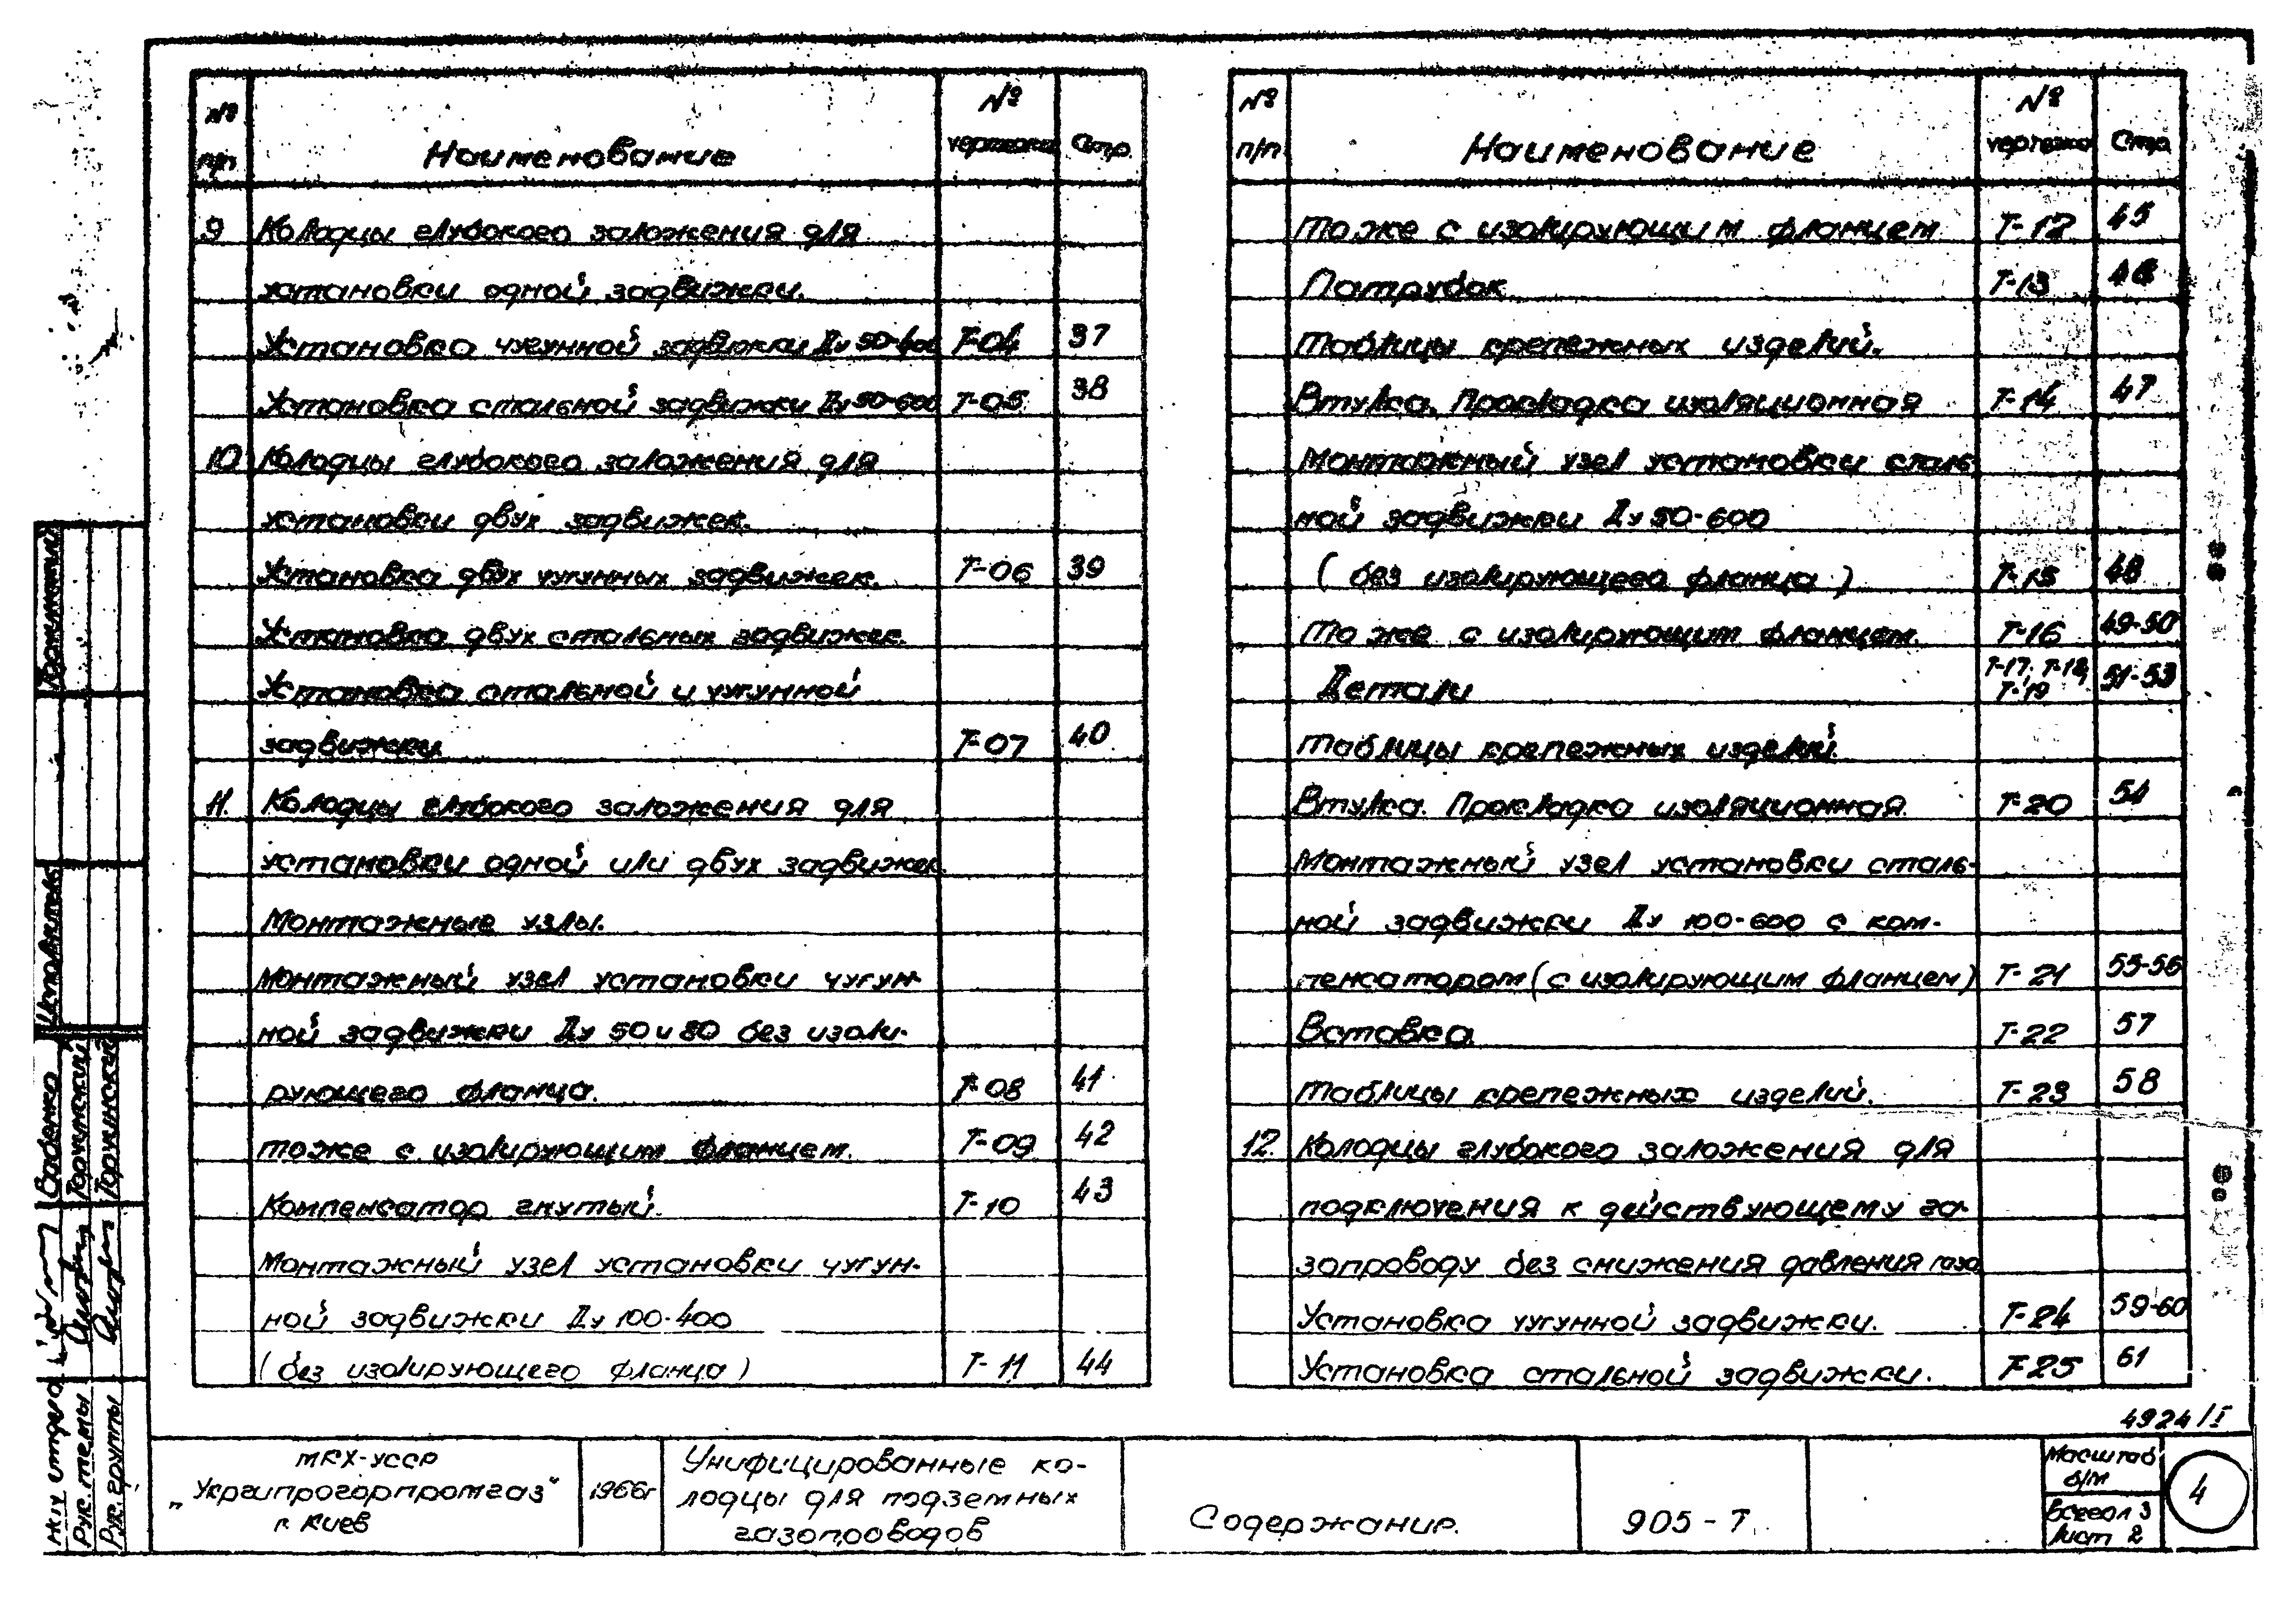 № п/п Наименование № чертежа Стр.
9 Колодцы глубокого заложения для
установки одной задвижки.
Установка чугунной задвижки Ду 50-400 Т-04 37
Установка стальной задвижки Ду 50-600 Т-05 38
10 Колодцы глубокого заложения для
установки двух задвижек.
Установка двух чугунных задвижек. Т-06 39
Установка двух стальных задвижек.
Установка стальной и чугунной
задвижки Т-07 40
11. Колодцы глубокого заложения для
установки одной или двух задвижек
Монтажные узлы.
Монтажный узел установки чугун-
ной задвижки Ду 50 и 80 без изоли-
рующего фланца. Т-08 41
тоже с изолирующим фланцем. Т-09 42
Компенсатор гнутый. Т-10 43
Монтажный узел установки чугун-
ной задвижки Ду 100-400
(без изолирующего фланца) Т-11 44
№ п/п Наименование № чертежа Стр.
тоже с изолирующим фланцем Т-12 45
Патрубок Т-13 46
Таблицы крепежных изделий.
Втулка. Прокладка изоляционная Т-14 47
Монтажный узел установки сталь-
ной задвижки Ду 50-600
(без изолирующего фланца) Т-15 48
То же с изолирующим фланцем. Т-16 49-50
Детали Т-17, Т-18, Т-19 51-53
Таблицы крепежных изделий.
Втулка. Прокладка изоляционная. Т-20 54
Монтажный узел установки сталь-
ной задвижки Ду 100-600 с ком-
пенсатором (с изолирующим фланцем) Т-21 55-56
Вставка Т-22 57
Таблицы крепежных изделий. Т-23 58
12. Колодцы глубокого заложения для
подключения к действующему га-
зопроводу без снижения давления газа
Установка чугунной задвижки. Т-24 59-60
Установка стальной задвижки. Т-25 61
4924/I
МКХ-УССР
„Укргипрогорпромгаз"
г. Киев
1966г
Унифицированные ко-
лодцы для подземных
газопроводов
Содержание.
905-Т
Масштаб
б/м
Всего л 3
Лист 2
4
Исполнитель
Бабенко
Торжинский
Торжинский
Рук. темы
Рук. группы